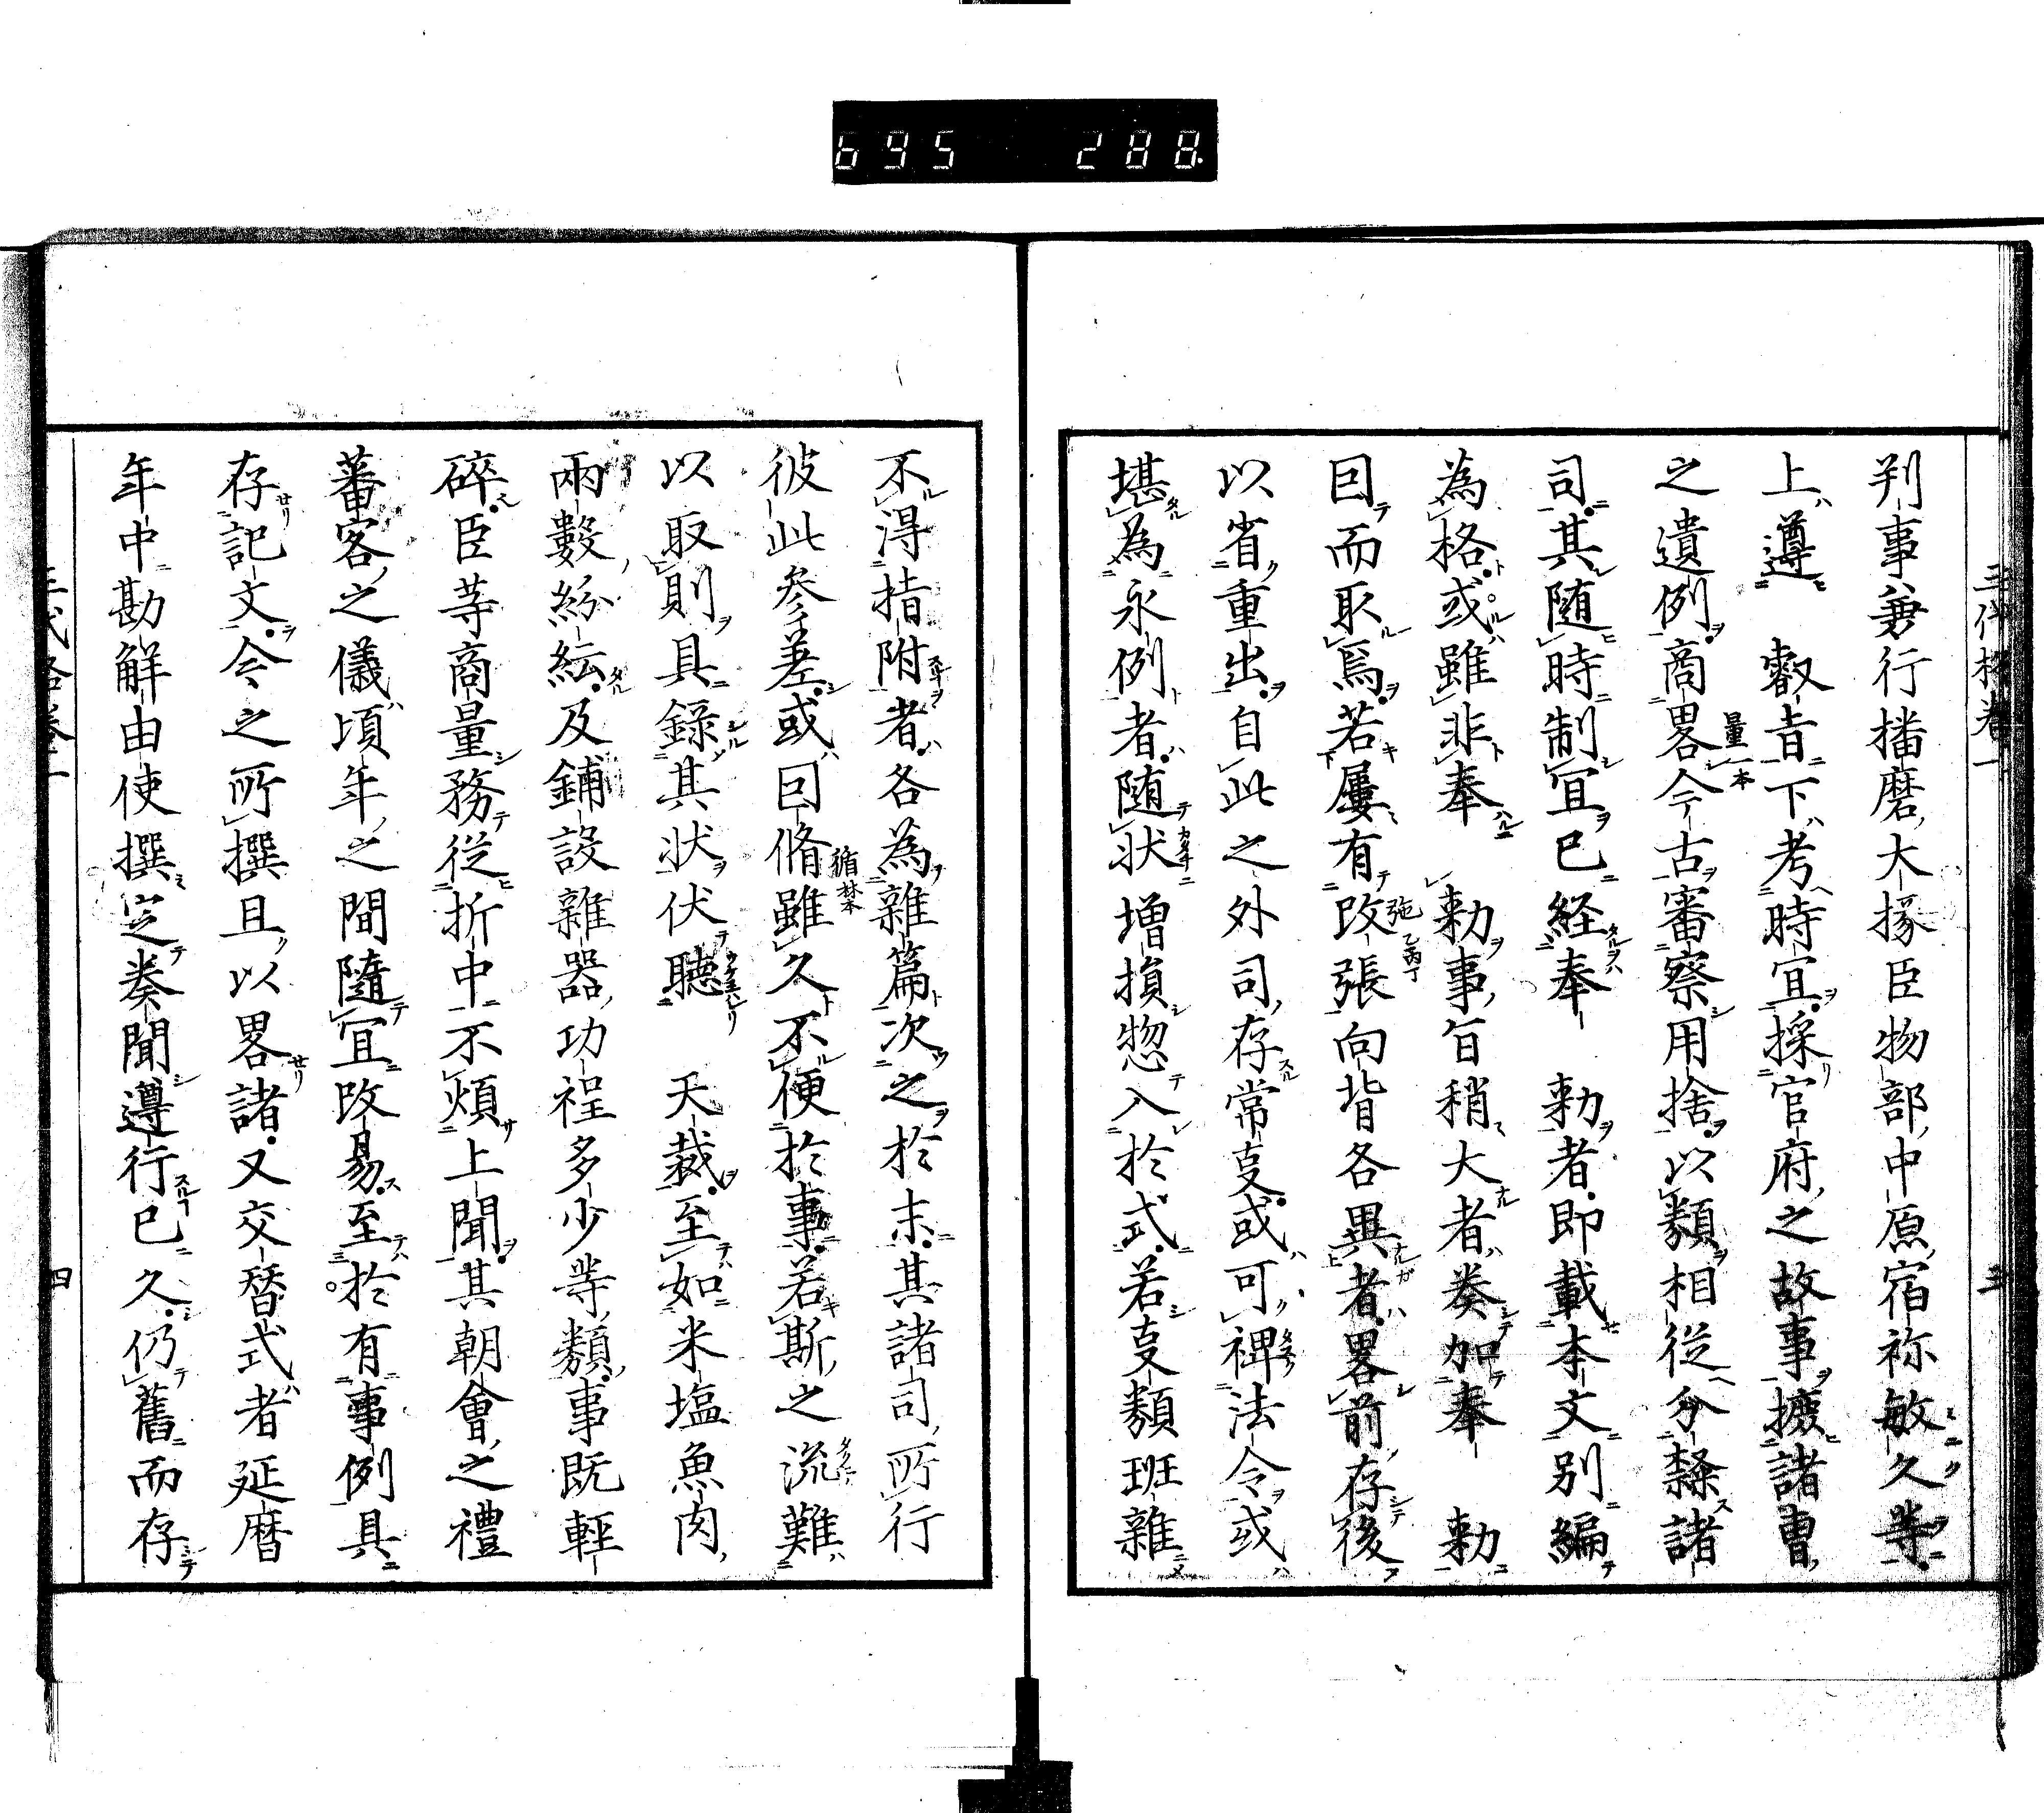 695 288
三代格卷一 三
判事兼行播磨大掾臣物部中原宿祢敏久等
上遵 叡旨下考時宜採官府之故事摭諸曹
之遺例商畧今古審察用捨以類相從分隸諸
司其随時制宜已経奉 勅者即載本文別編
為格或雖非奉 勅事旨稍大者奏加奉 勅
因而取焉若屢有改張向背各異者畧前存後
以省重出自此之外司存常夏或可裨法令或
堪為永例者随状増損惣入於式若夏類班雜
不得指附者各為雜篇次之於末其諸司所行
彼此参差或因脩雖久不便於事若斯之流難
以取則具錄其状伏聽 天裁至如米塩魚肉
兩數紛紜及鋪設雜器功程多少等類事既輕
碎臣等商量務從折中不煩上聞其朝會之禮
蕃客之儀頃年之間隨宜改易至於有事例具
存記文今之所撰且以畧諸又交替式者延暦
年中勘解由使撰定奏聞遵行已久仍舊而存
三代格卷一 四